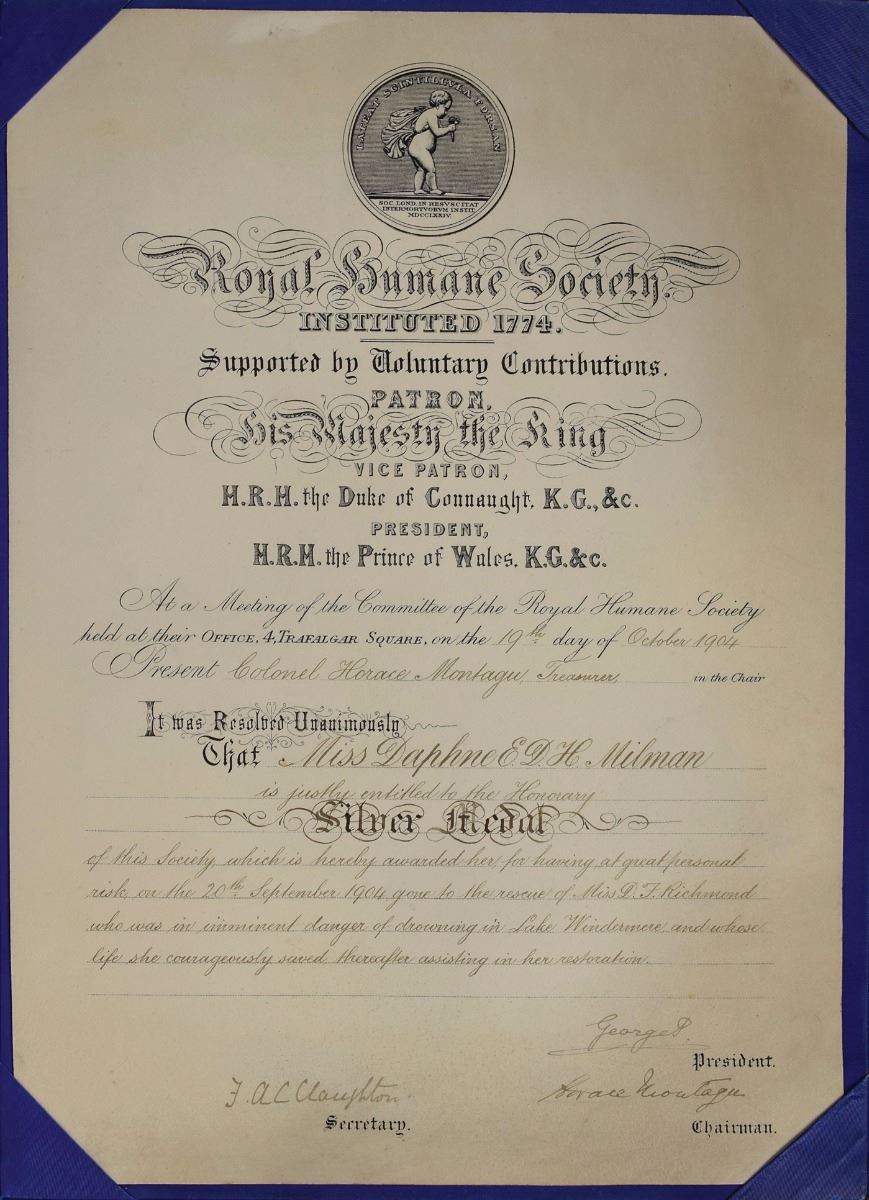 LATEAT SCINTILLVLA FORSAN
SOC. LOND. IN RESVSCITAT
INTERMORTVORVM INSTIT.
MDCCLXXIV.
Royal Humane Society.
INSTITUTED 1774.
Supported by Voluntary Contributions.
PATRON,
His Majesty the King
VICE PATRON,
H.R.H. the Duke of Connaught, K.G., &c.
PRESIDENT,
H.R.H. the Prince of Wales, K.G. &c.
At a Meeting of the Committee of the Royal Humane Society
held at their OFFICE, 4, TRAFALGAR SQUARE, on the 19th day of October 1904
Present Colonel Horace Montagu, Treasurer, in the Chair
It was Resolved Unanimously
That Miss Daphne E. D. H. Milman
is justly entitled to the Honorary
Silver Medal
of this Society, which is hereby awarded her, for having at great personal
risk, on the 20th September 1904, gone to the rescue of Miss D. F. Richmond
who was in imminent danger of drowning in Lake Windermere, and whose
life she courageously saved, thereafter assisting in her restoration.
George P.
President.
F. A. C. Claughton
Horace Montagu
Secretary.
Chairman.